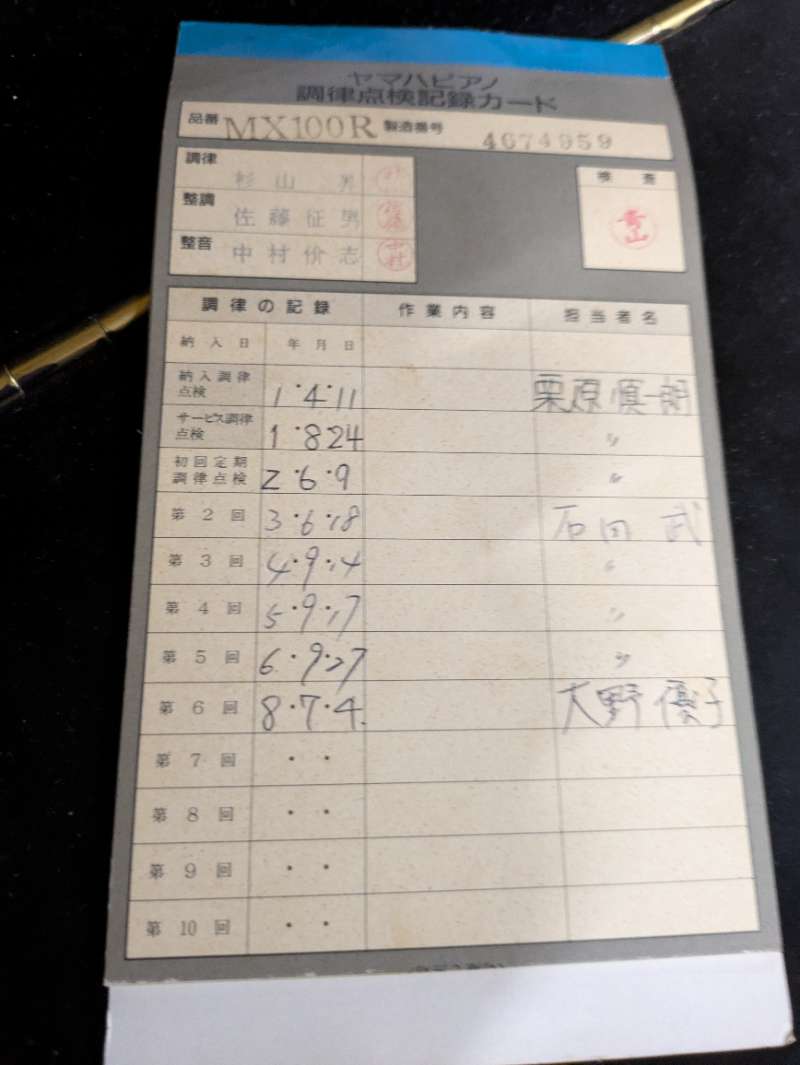 ヤマハピアノ
調律点検記録カード
品番 MX100R 製造番号 4674959
調律 杉山 男
検査
整調 佐藤征男 佐藤
青山
整音 中村价志 中村
調律の記録 作業内容 担当者名
納入日 年月日
納入調律点検 1・4・11 栗原慎一朗
サービス調律点検 1・8・24 〃
初回定期調律点検 2・6・9 〃
第2回 3・6・18 石田 武
第3回 4・9・14 〃
第4回 5・9・17 〃
第5回 6・9・27 〃
第6回 8・7・4. 大野優子
第7回 ・ ・
第8回 ・ ・
第9回 ・ ・
第10回 ・ ・